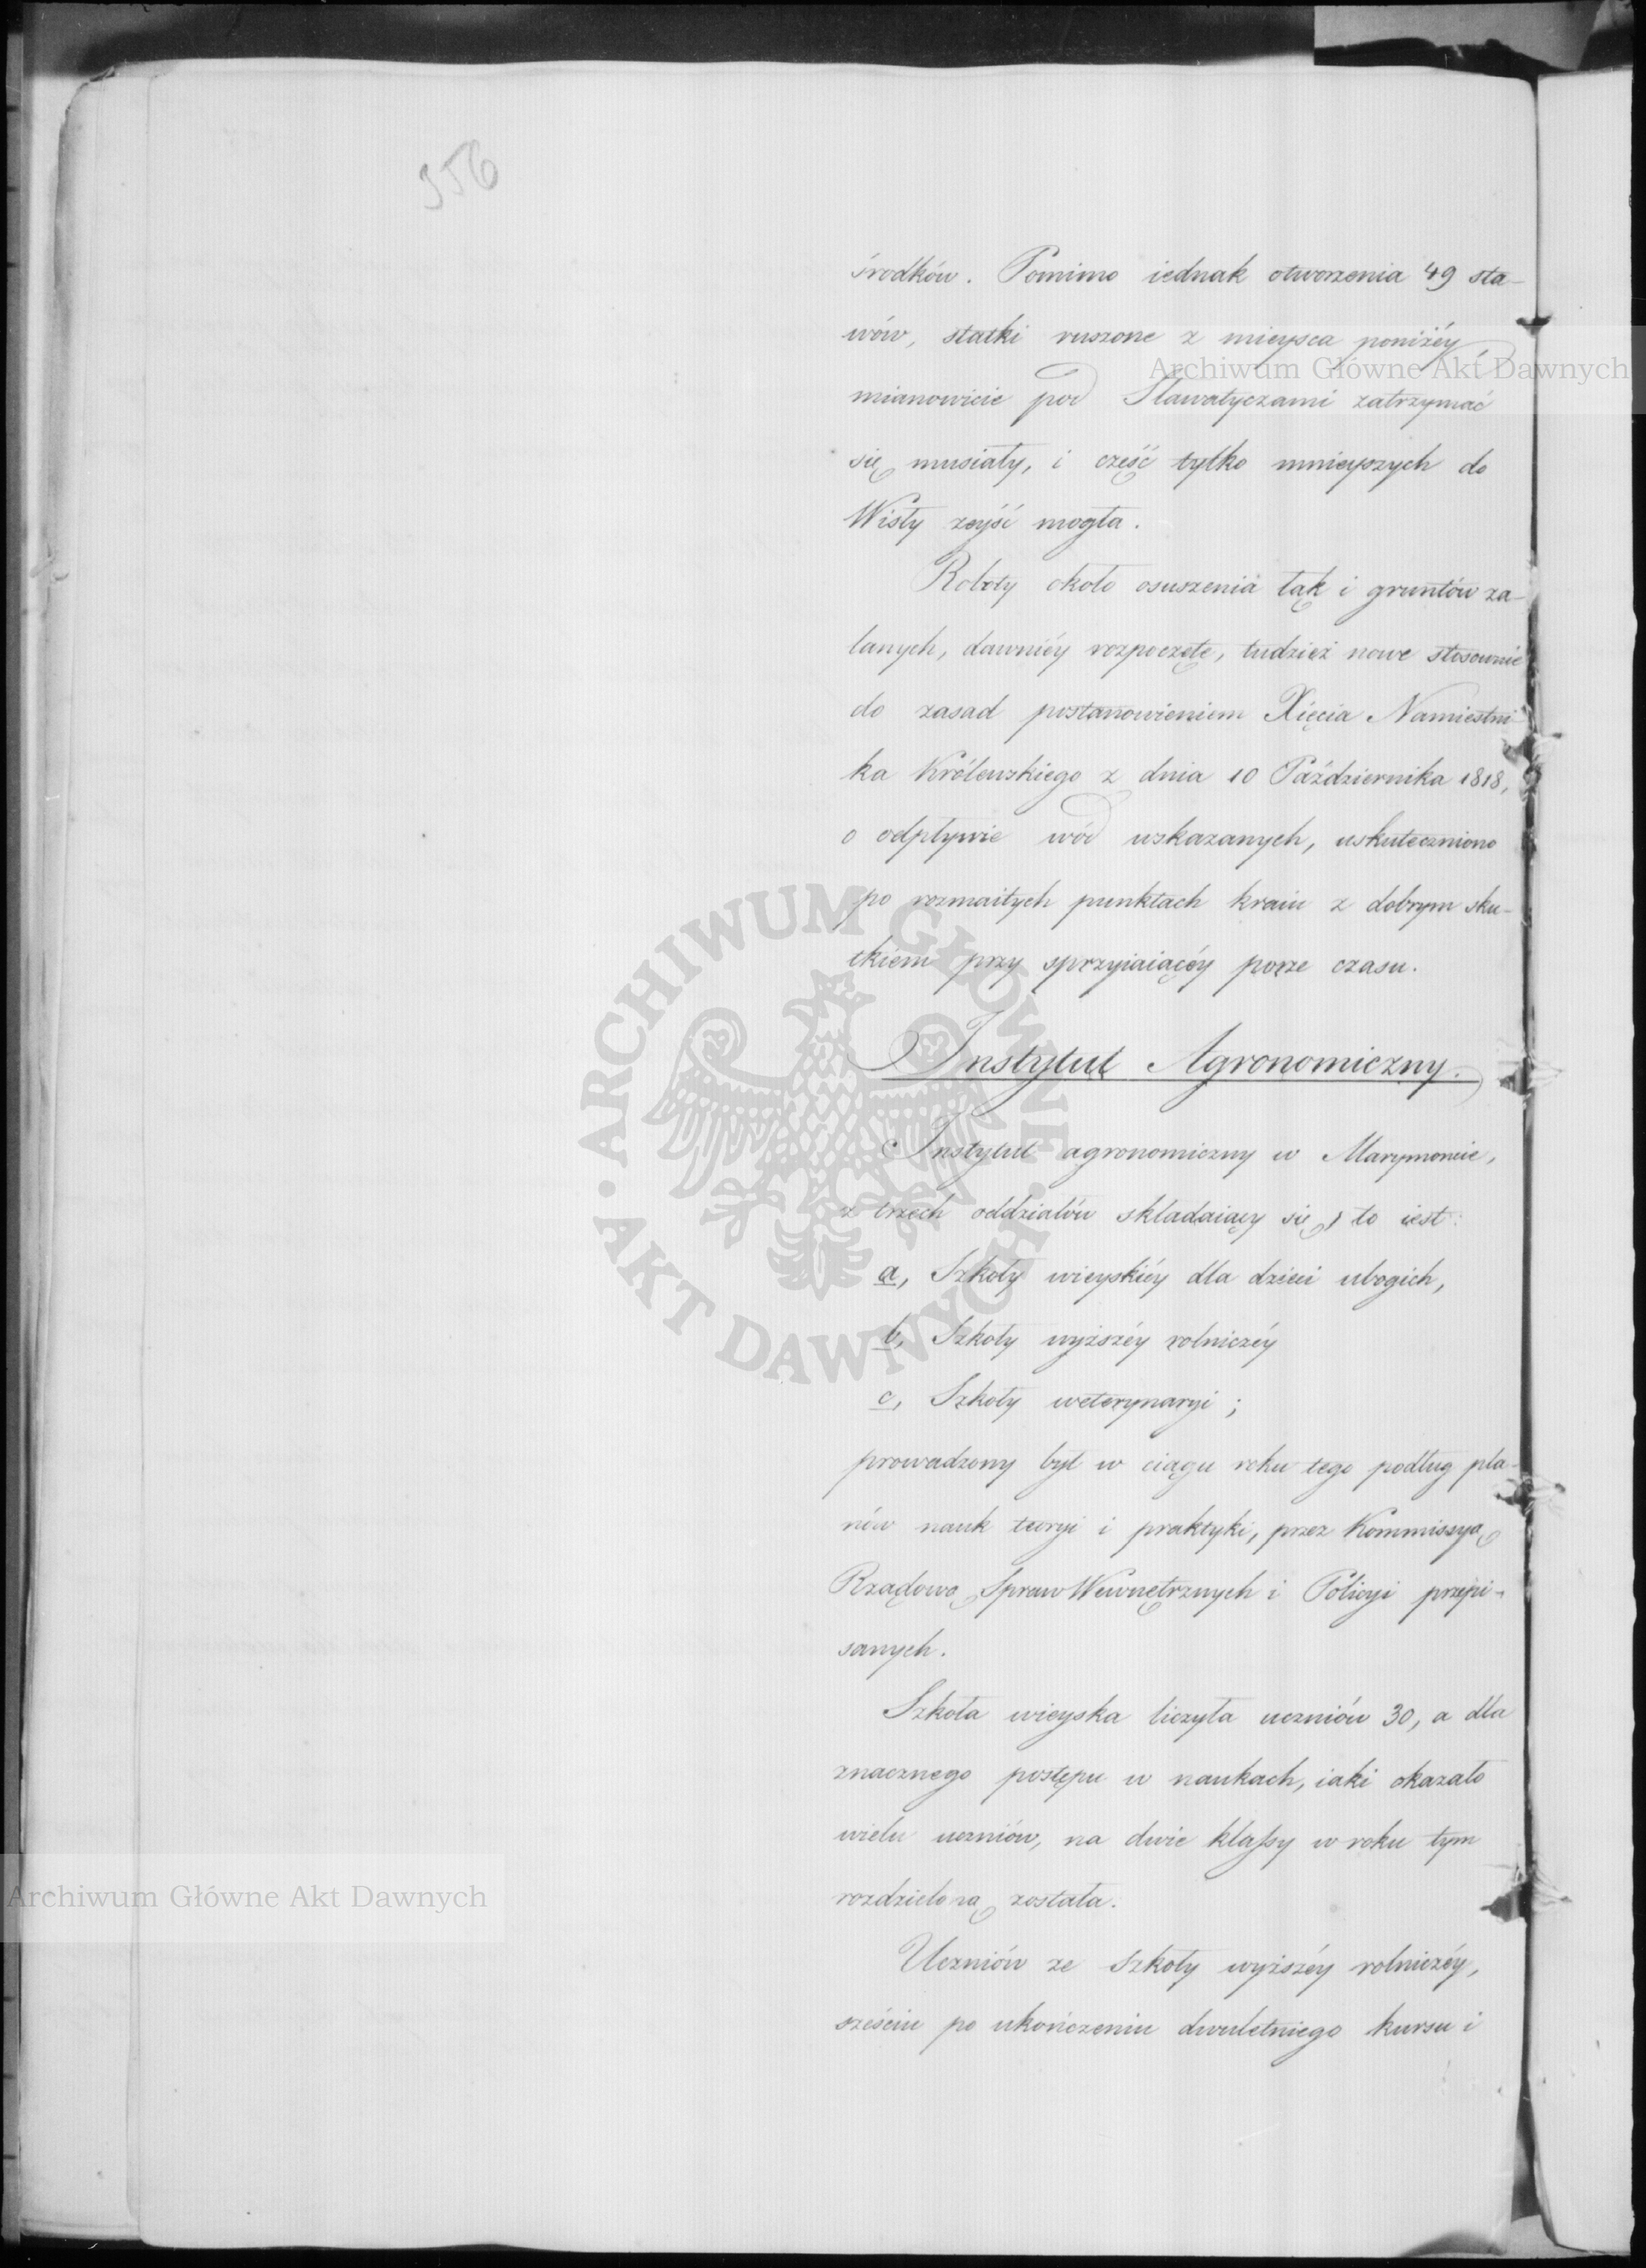 356
środków. Pomimo iednak otworzenia 49 sta-
wów, statki ruszone z mieysca poniżéy,
mianowicie pod Sławatyczami zatrzymać
się musiały, i część tylko mnieyszych do
Wisły zeyść mogła.
Roboty około osuszenia łąk i gruntów za-
lanych, dawniéy rozpoczęte, tudzież nowe stosownie
do zasad postanowieniem Xięcia Namiestni-
ka Królewskiego z dnia 10 Października 1818,
o odpływie wód wskazanych, uskuteczniono
po rozmaitych punktach kraiu z dobrym sku-
tkiem przy sprzyiaiącéy porze czasu.
Instytut Agronomiczny.
Instytut agronomiczny w Marymoncie,
z trzech oddziałów składaiący się, to iest:
a, Szkoły wieyskiéy dla dzieci ubogich,
b, Szkoły wyższéy rolniczéy
c, Szkoły weterynaryi;
prowadzony był w ciągu roku tego podług pla-
nów nauk teoryi i praktyki, przez Kommissyą
Rządową Spraw Wewnętrznych i Policyi przepi-
sanych.
Szkoła wieyska liczyła uczniów 30, a dla
znacznego postępu w naukach, iaki okazało
wielu uczniów, na dwie klassy w roku tym
rozdzieloną została.
Uczniów ze szkoły wyższéy rolniczéy,
sześciu po ukończeniu dwuletniego kursu i
Archiwum Główne Akt Dawnych
ARCHIWUM GŁÓWNE AKT DAWNYCH
Archiwum Główne Akt Dawnych